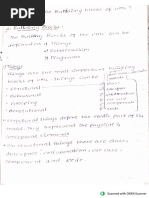 the Building blocks of UML?
Building Blocks:
The building blocks of the UML can be
a) Things
b) Relationships
c) Diagrams
Things
Things are the most important building
blocks of UML. Things can be
Structural
Behavioral
Grouping
Annotational
Structural things define the static part of the
model. They represent the physical &
conceptual elements.
Structural things there are class,
Interface, collaboration, use case,
Component and node.
Scanned with OKEN Scanner